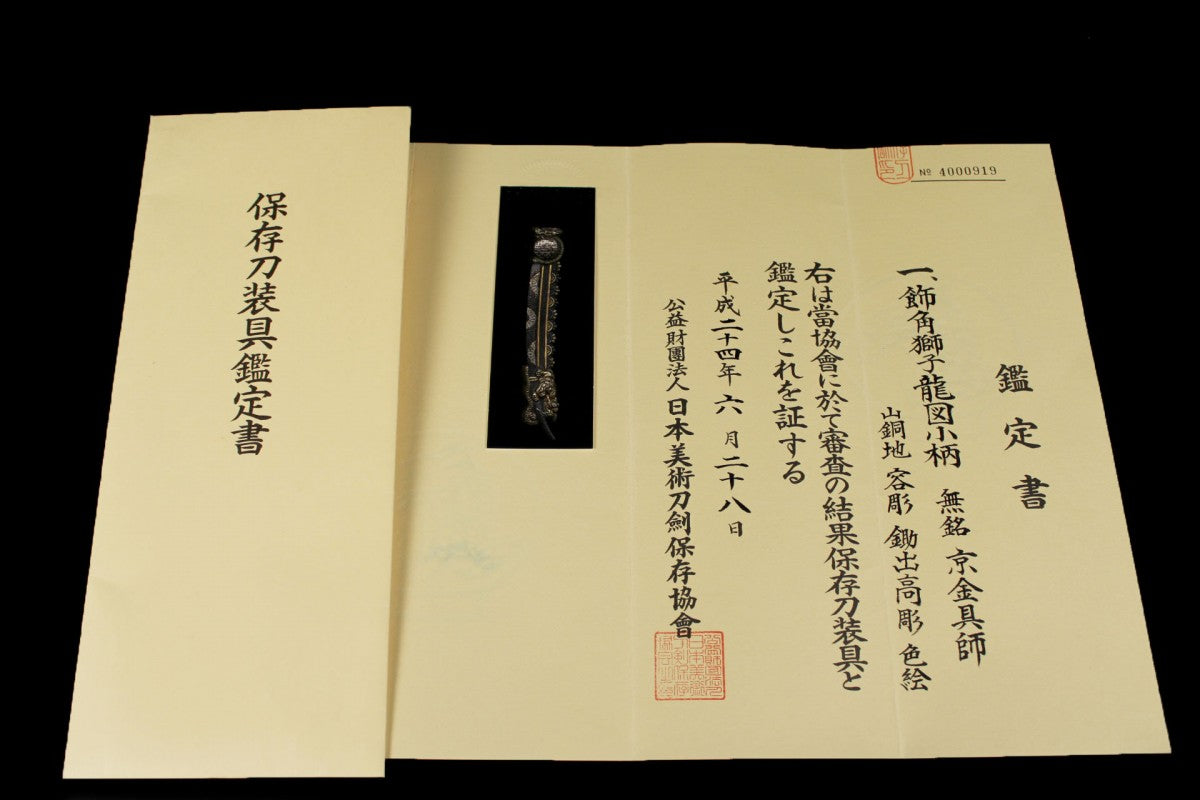 保存刀装具鑑定書
№ 4000919
鑑定書
一、飾角獅子龍図小柄 無銘 京金具師
山銅地 容彫 鋤出高彫 色絵
右は當協會に於て審査の結果保存刀装具と
鑑定しこれを証する
平成二十四年六月二十八日
公益財團法人日本美術刀劍保存協會